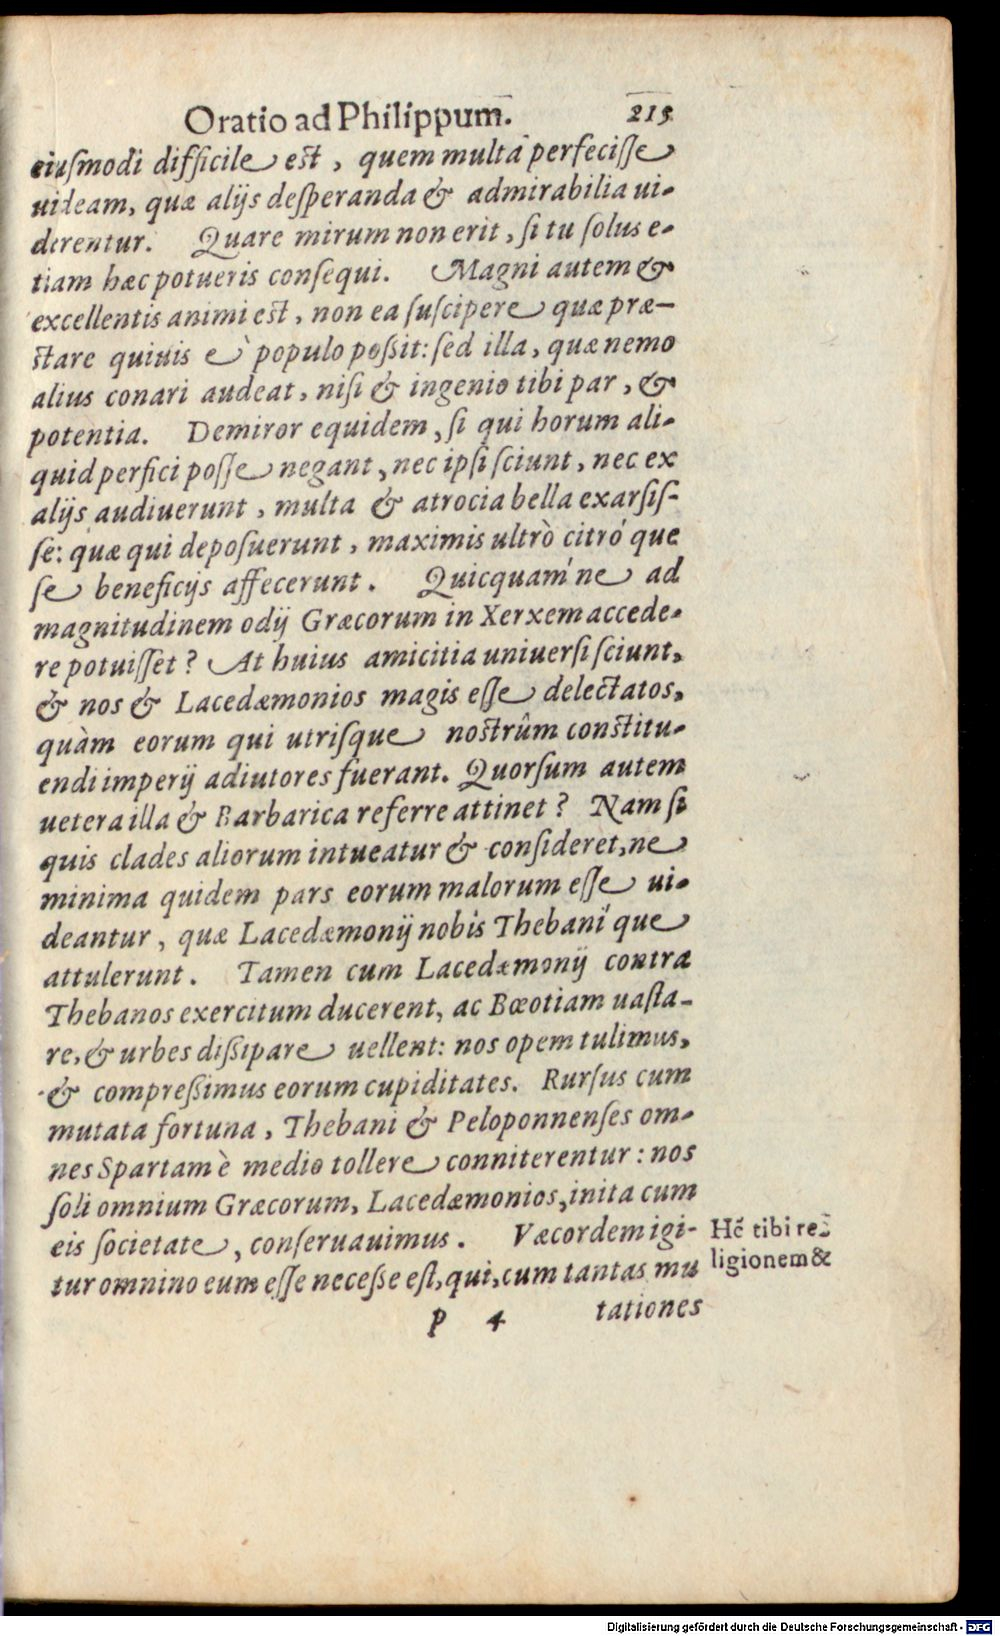 Oratio ad Philippum. 215
eiuſmodi difficile est, quem multa perfeciſſe
uideam, quæ alijs deſperanda & admirabilia ui-
derentur. Quare mirum non erit, ſi tu ſolus e-
tiam hæc potueris conſequi. Magni autem &
excellentis animi est, non ea ſuſcipere quæ præ-
stare quiuis è populo poßit: ſed illa, quæ nemo
alius conari audeat, niſi & ingenio tibi par, &
potentia. Demiror equidem, ſi qui horum ali-
quid perfici poſſe negant, nec ipſi ſciunt, nec ex
alijs audiuerunt, multa & atrocia bella exarſiſ-
ſe: quæ qui depoſuerunt, maximis ultrò citró que
ſe beneficijs affecerunt. Quicquam'ne ad
magnitudinem odij Græcorum in Xerxem accede-
re potuiſſet? At huius amicitia uniuerſi ſciunt,
& nos & Lacedæmonios magis eſſe delectatos,
quàm eorum qui utriſque nostrûm constitu-
endi imperij adiutores fuerant. Quorſum autem
uetera illa & Barbarica referre attinet? Nam ſi
quis clades aliorum intueatur & conſideret, ne
minima quidem pars eorum malorum eſſe ui-
deantur, quæ Lacedæmonij nobis Thebani' que
attulerunt. Tamen cum Lacedæmonij contra
Thebanos exercitum ducerent, ac Bœotiam uaſta-
re, & urbes dißipare uellent: nos opem tulimus,
& compreßimus eorum cupiditates. Rurſus cum
mutata fortuna, Thebani & Peloponnenſes om-
nes Spartam è medio tollere conniterentur: nos
ſoli omnium Græcorum, Lacedæmonios, inita cum
eis ſocietate, conſeruauimus. Væcordem igi-
tur omnino eum eſſe neceße eſt, qui, cum tantas mu
Hc̄ tibi re-
ligionem &
P 4 tationes
Digitalisierung gefördert durch die Deutsche Forschungsgemeinschaft - DFG